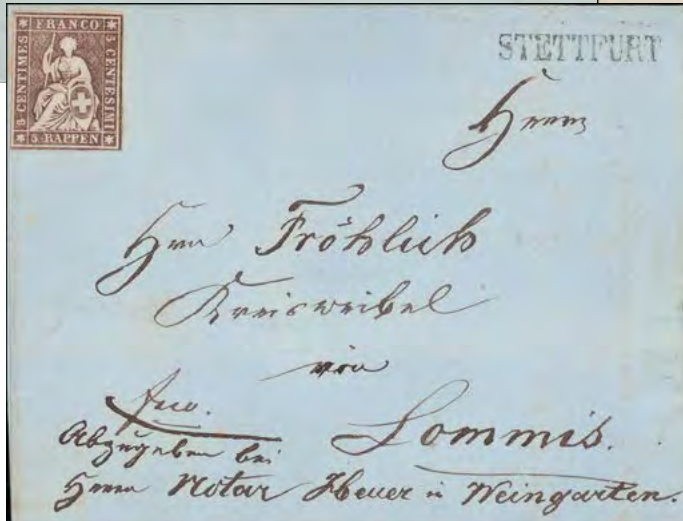 FRANCO
5 CENTIMES
5 CENTESIMI
5 RAPPEN
STETTFURT
Herrn
Hrn Fröhlich
Kreisweibel
von
Lommis.
fco.
Abzugeben bei
Herrn Notar Heuer in Weingarten.